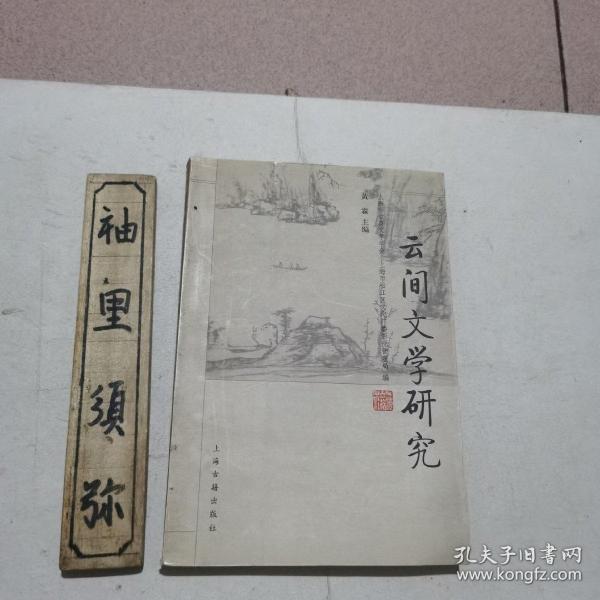 袖里須弥
云间文学研究
黄霖 主编
上海古籍出版社
孔夫子旧书网
www.kongfz.com